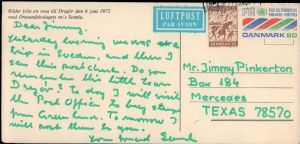 Bilder från en resa till Dragör den 6 juni 1972
med Öresundsbolagets m/s Scania.
LUFTPOST
PAR AVION
DANMARK
1945-1970
DANMARK 80
Dear Jimmy.
Yesterday evening we was at a
trip in Sweden, and there I
saw this post card. Do you
remember this day in
Dragör? To day I will visit
the Post Office to buy stamps
from Greenland. To morrow I
will post them to you.
Your friend
Mr. Jimmy Pinkerton
Box 184
Mercedes
TEXAS 78570